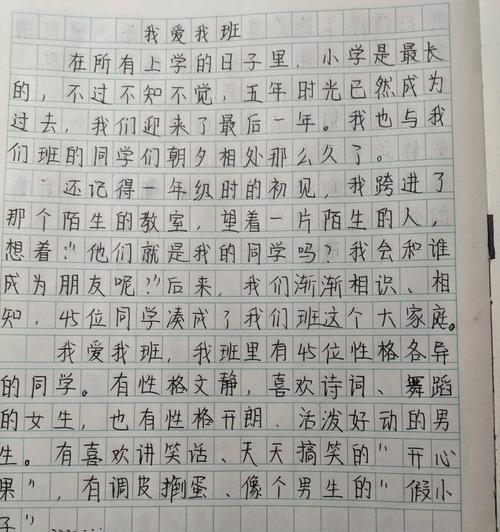 我爱我班
在所有上学的日子里，小学是最长
的，不过不知不觉，五年时光已然成为
过去，我们迎来了最后一年。我也与我
们班的同学们朝夕相处那么久了。
还记得一年级时的初见，我跨进了
那个陌生的教室，望着一片陌生的人，
想着："他们就是我的同学吗？我会和谁
成为朋友呢？"后来，我们渐渐相识、相
知，45位同学凑成了我们班这个大家庭。
我爱我班，我班里有45位性格各异
的同学。有性格文静，喜欢诗词、舞蹈
的女生，也有性格开朗．活泼好动的男
生。有喜欢讲笑话、天天搞笑的"开心
果"，有调皮捣蛋、像个男生的"假小
子"……